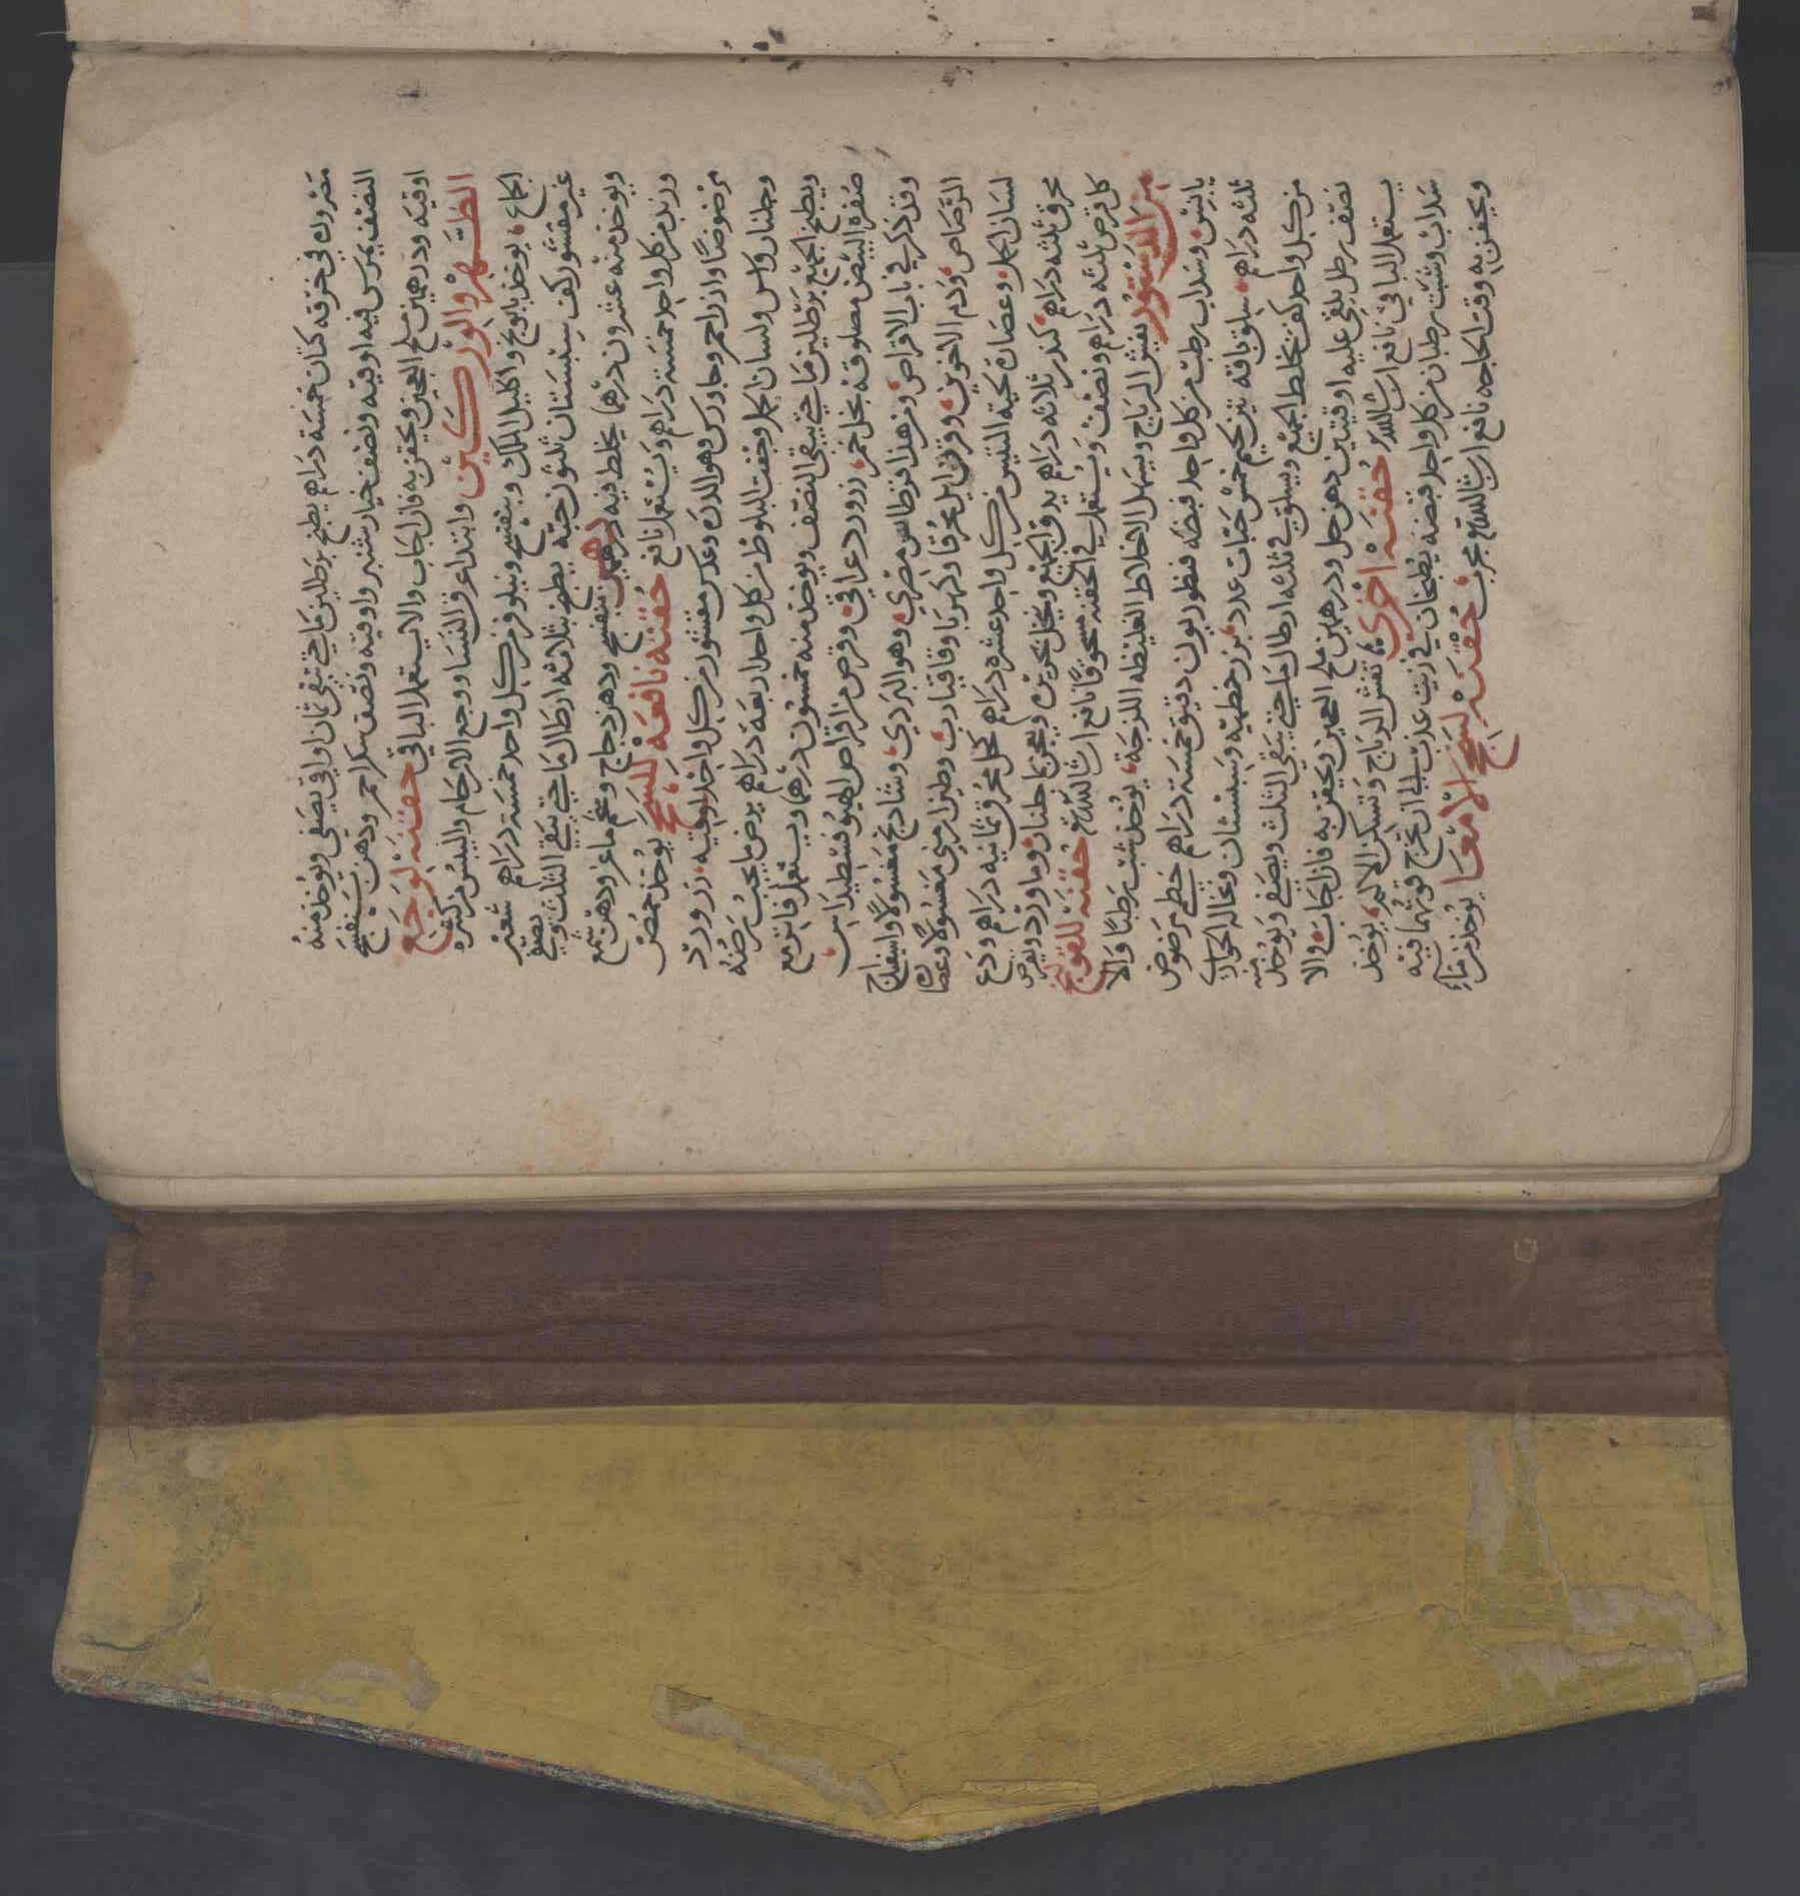 مصروره في خرقه كتان خمسة دراهم يطبخ برطلين ما حتى يبقى ثمان اواقي يصفى ويوخذ منه
النصف يمرس فيه اوقيه ونصف خيار شنبر واوقيه ونصف سكر احمر ودهن بنفسج
اوقيه ودرهمين ملح العجين ويحقن به فان اجاب والا يستعمل الباقي حقنة لوجع
الظهر والوركين وابتدا عرق النسا ووجع الارحام واليبس من كثرة
الجماع يوخذ بابونج واكليل الملك وبنفسج ونيلوفر من كل واحد خمسة دراهم شعير
غير مقشور كف سبستان ثلثون حبه يطبخ بثلاثه ارطال ما حتى يبقى الثلث ويصفى
ويوخذ منه عشرون درهما يخلط فيه درهمين بنفسج ودهن دجاج وشحم ماعز ودهن شمع
وزبد من كل واحد خمسة دراهم ويستعمل نافع حقنة نافعة للسحج يوخذ حمض
مرضوضا وارز احمر وجاورس وهو الدره وعدس مقشور من كل واحد اوقيه زر ورد
وجلنار واس ولسان الحمل وجفت البلوط من كل واحد اربعة دراهم يرض ما يجب رضه
ويطبخ الجميع برطلين ما حتى يبقى النصف ويوخذ منه خمسون درهما ويستعمل فاترا مع
صفرة البيض مصلوقة بخل خمر زر ورد عراقي وقرص من اقراص الهيوفسطيداس
وقد ذكر في باب الاقراص ومن هذا قرطاس مصري وهو البردي وشادنج مغسولا واسفيداج
الرصاص ودم الاخوين وقرن ايل محرقا وكهربا وقاقيا وطين ارمني مغسولا وعصاره
لسان الحمل وعصارة لحية التيس من كل واحد عشره دراهم كحل محرق ثمانيه دراهم ودع
محرق ثلثه دراهم كندر ثلاثه دراهم يدق الجميع وينخل بحرير ويعجن بما جلنار وما ورد ويقرص
كل قرص ثلثه دراهم ونصف ويستعمل في الحقنه مسحوقا نافع ان شا الله تع حقنة للقولنج
من الدستور يفش الرياح ويسهل الاخلاط الغليظه اللزجة يوخذ شبت رطبا والا
يابس وسداب رطب من كل واحد قبضه قنطوريون دقيق خمسة دراهم خطمي مرضوض
ثلثه دراهم سلق باقه تين لحيم خمس حبات عدد بزر خطميه وسبستان ونخاله الحواري
من كل واحد كف يخلط الجميع ويسلق في ثلثه ارطال ما حتى يبقي الثلث ويصفى ويوخذ منه
نصف رطل يلقى عليه اوقيتين دهن حل ودرهمين ملح العجين ويحقن به فان اجاب والا
يستعمل الباقي نافع ان شا الله حقنة اخرى تفش الرياح وتسكن الالم يوخذ
سداب وشبت رطبان من كل واحد قبضه يطبخان في زيت عذب الى ان تخرج قوتهما فيه
ويحقن به وقت الحاجه نافع ان شا الله تع مجرب حقنة لسحج الامعا يوخذ من ماء